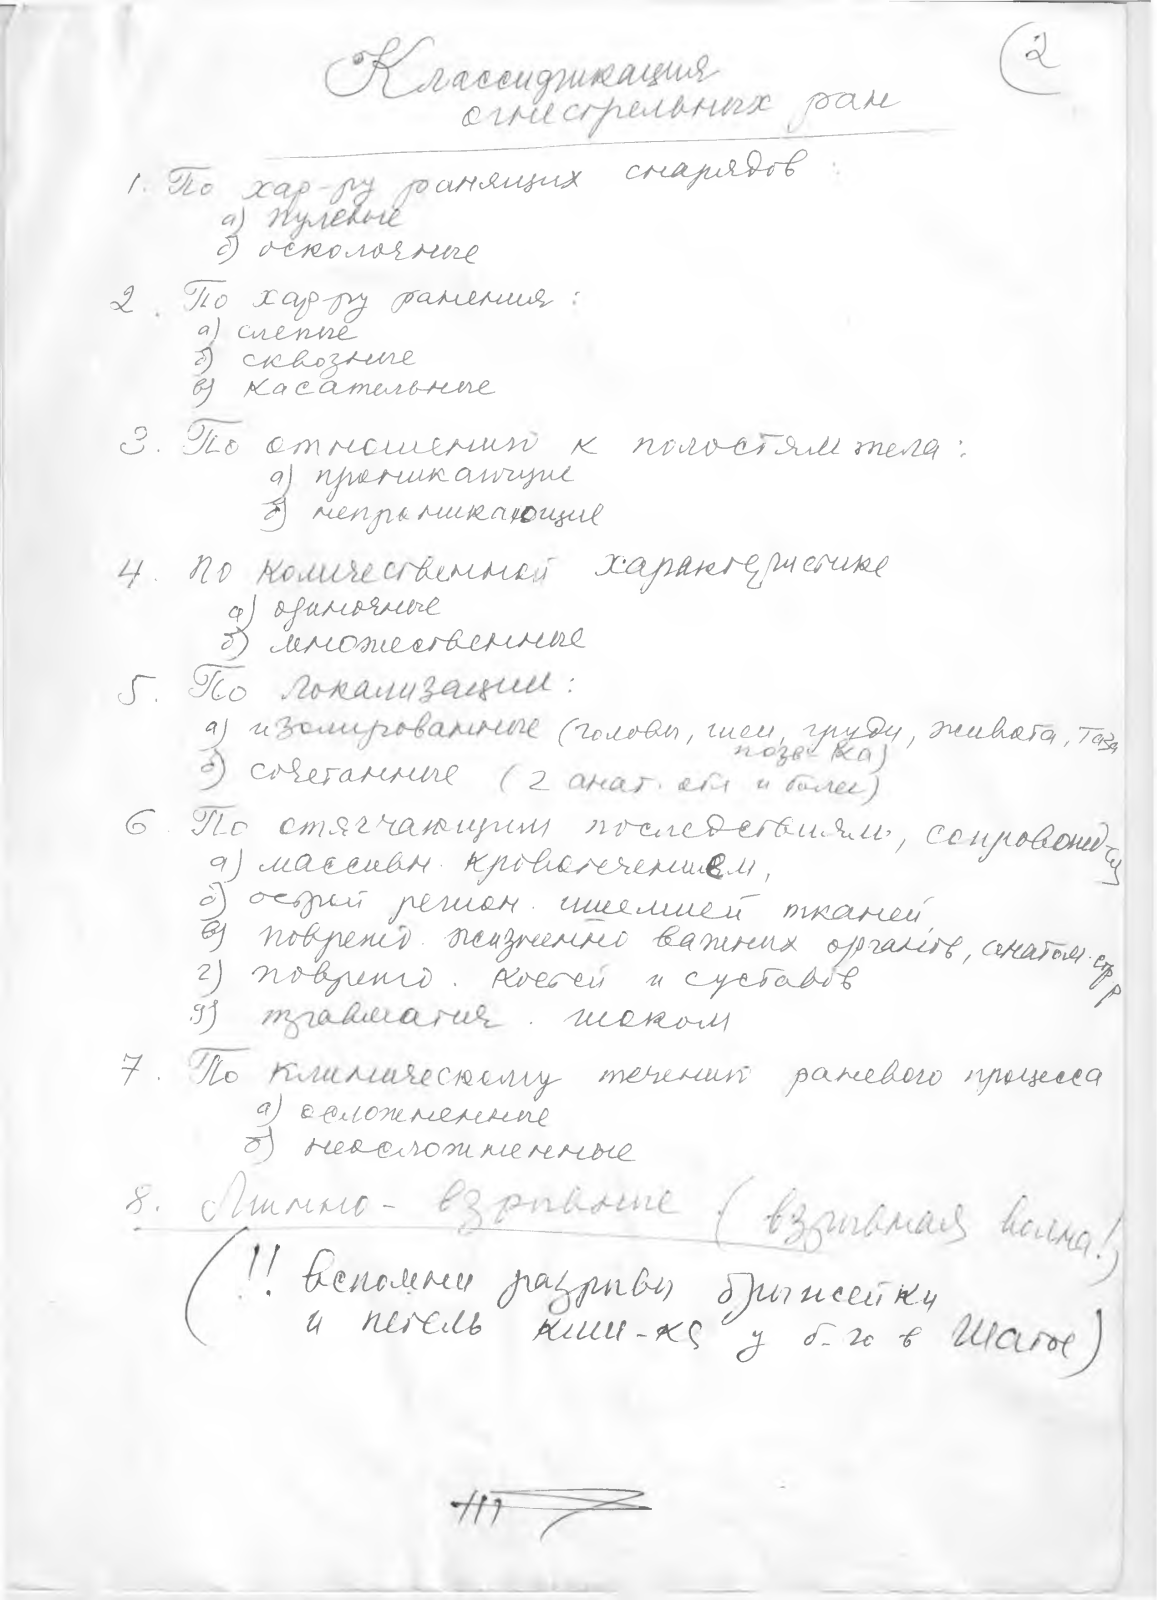 2
Классификация
огнестрельных ран
1. По хар-ру ранящих снарядов :
а) пулевые
б) осколочные
2. По хар-ру ранения :
а) слепые
б) сквозные
в) касательные
3. По отношений к полостям тела :
а) проникающие
б) непроникающие
4. По количественной характеристике
а) одиночные
б) множественные
5. По локализации :
а) изолированные (головы, шеи, груди, живота, таза
позв-ка)
б) сочетанные (2 анат. обл и более)
6 По отягчающим последствиям,
а) массивн. кровотечением,
б) острой регион. ишемией тканей
в) поврежд. жизненно важных органов, анатом. стр-р
г) поврежд. костей и суставов
д) травматич. шоком
7. По клиническому течений раневого процесса
а) осложненные
б) неосложненные
8. Минно - взрывные (взрывная волна!)
(!! вспомни разрывы брыжейки
и петель киш-ка у б-го в Шатое)